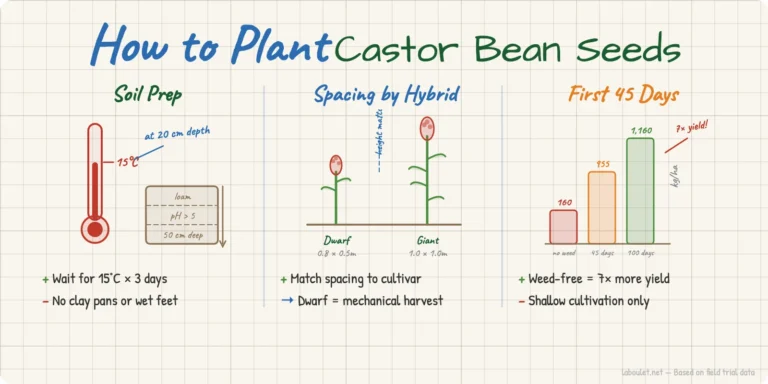 How to Plant Castor Bean Seeds
Soil Prep
at 20 cm depth
15°C
loam
pH > 5
50 cm deep
+ Wait for 15°C × 3 days
− No clay pans or wet feet
Spacing by Hybrid
height matts
Dwarf
0.8 × 0.5m
Giant
1.0 × 1.0m
+ Match spacing to cultivar
→ Dwarf = mechanical harvest
First 45 Days
7× yield!
1,160
955
160
kg/ha
no weed
45 days
100 days
+ Weed-free = 7× more yield
− Shallow cultivation only
laboulet.net — Based on field trial data